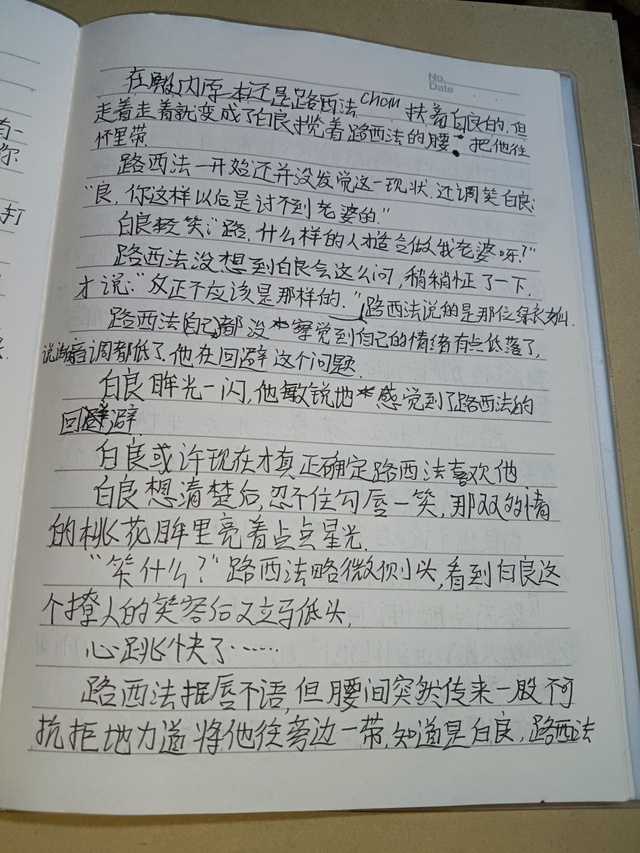 No.
Date
在殿内原本还是路西法 chom 扶着白良的.但
走着走着就变成了白良揽着路西法的腰.把他往
怀里带
路西法一开始还并没发觉这一现状.还调笑白良:
"良,你这样以后是讨不到老婆的."
白良轻笑:"路.什么样的人才会做我老婆呀?"
路西法没想到白良会这么问,稍稍怔了一下.
才说:"反正不应该是那样的."路西法说的是那位绿衣
路西法自己都没察觉到自己的情绪有点低落了,
说话音调都低了.他在回避这个问题.
白良眸光一闪,他敏锐地感觉到了路西法的
回避
白良或许现在才真正确定路西法喜欢他
白良想清楚后,忍不住勾唇一笑,那双多情
的桃花眸里亮着点点星光.
"笑什么?"路西法略微侧头,看到白良这
个撩人的笑容后又立马低头.
心跳快了……
路西法抿唇不语,但腰间突然传来一股不可
抗拒地力道将他往旁边一带,知道是白良,路西法
你
打